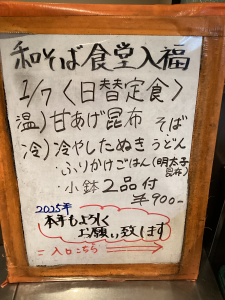 和そば食堂入福
1/7〈日替定食〉
温)甘あげ昆布 そば
冷)冷やしたぬきうどん
・ふりかけごはん(明太子昆布)
・小鉢2品付
¥900-
2025年
本年もよろしく
お願い致します
=入口こちら→